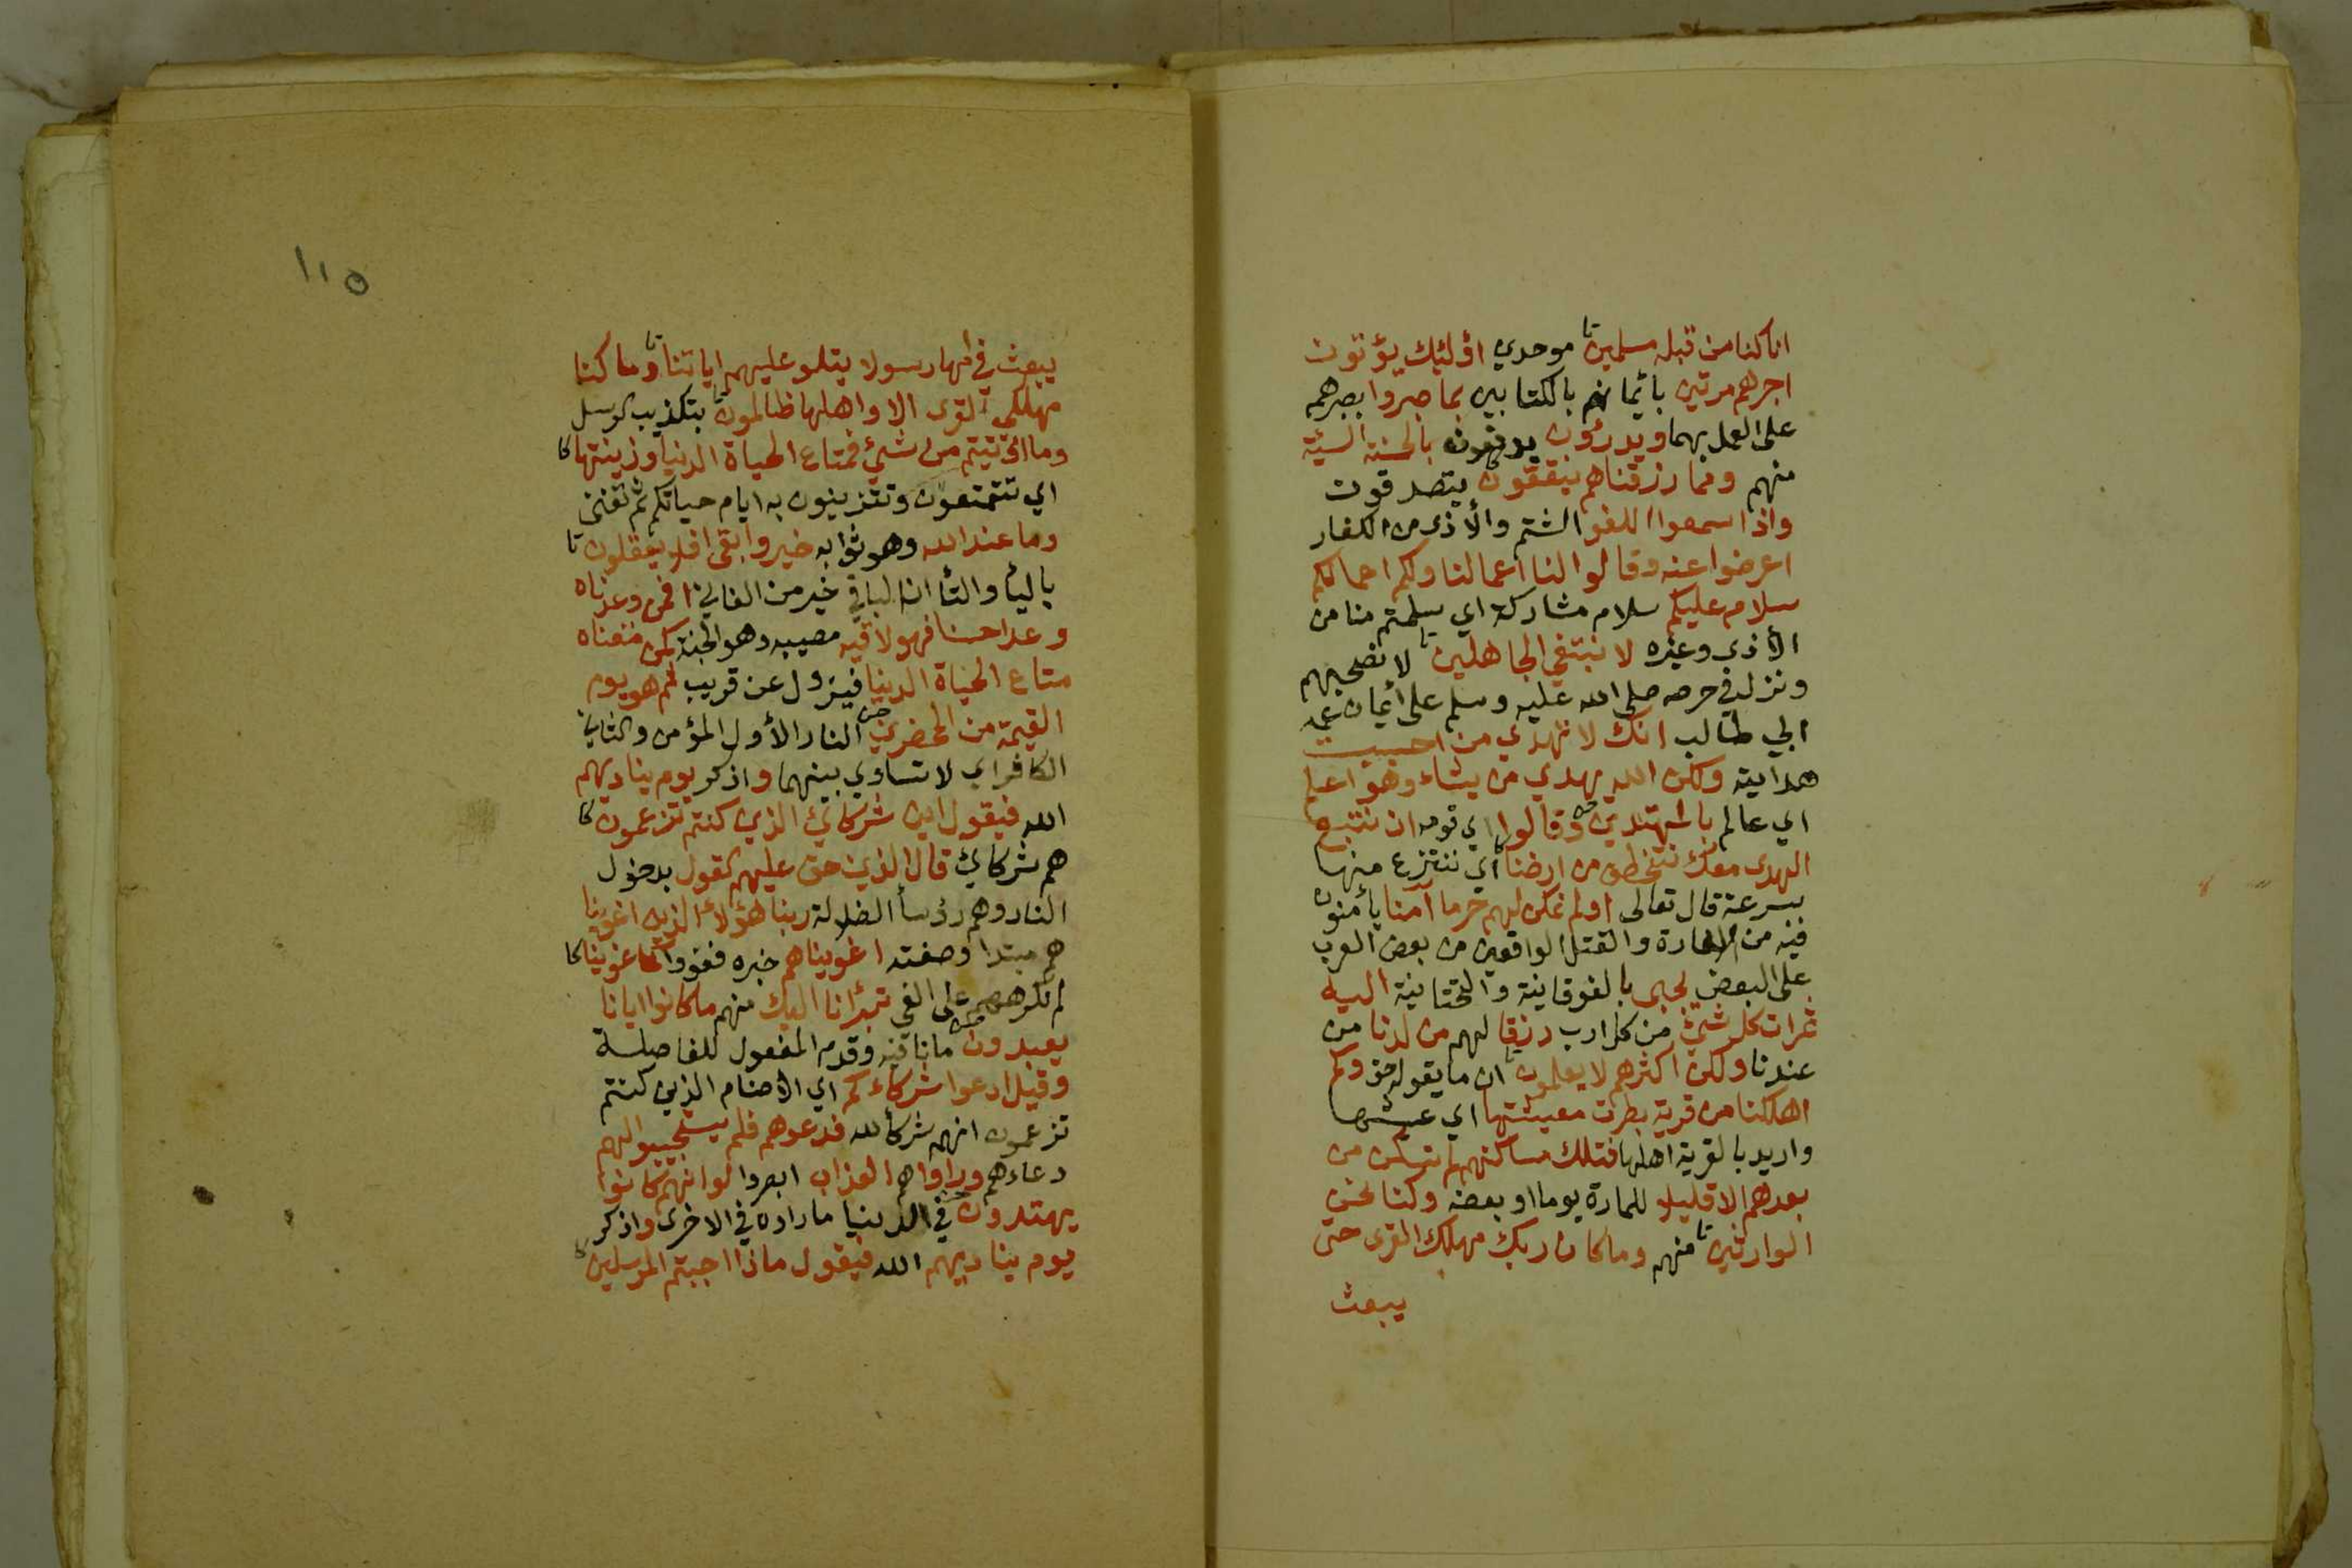 انا كنا من قبله مسلمين تا موحدي اؤلئيك يؤتون
اجرهم مرتين بائيمانهم بالكتابين بما صبروا بصبرهم
على العمل بهما ويدرؤون يدفعون بالحسنة السيئة
منهم ومما رزقناهم ينفقون كا يتصدقون
واذا سمعوا اللغو الشتم والأذى من الكفار
اعرضوا عنه وقالوا لنا اعمالنا ولكم اعمالكم
سلام عليكم سلام متاركة اي سلمتم منا من
الأذى وغيره لا نبتغي الجاهلين تا لا نصحبهم
ونزل في حرصه صلى الله عليه وسلم على ائيمان عمه
ابي طالب انك لا تهدي من احببت
هدايته ولكن الله يهدي من يشاء وهو اعلم
اي عالم بالمهتدين وقالوا اي قومه ان نتبع
الهدى معك نتخطف من ارضنا كا اي ننتزع منها
بسرعة قال تعالى اولم نمكن لهم حرما آمنا يأمنون
فيه من الاغارة والقتل الواقعين من بعض العرب
على البعض يجبى بالفوقانية والتحتانية اليه
ثمرات كل شيئ من كل ارب رزقا لهم من لدنا من
عندنا ولكن اكثرهم لا يعلمون تا ان ما يقوله حق وكم
اهلكنا من قرية بطرت معيشتها اي عيشها
واريد بالقرية اهلها فتلك مساكنهم لم تسكن من
بعدهم الا قليلا للمارة يوما او بعضه وكنا نحن
الوارثين تا منهم وما كان ربك مهلك القرى حتى
يبعث
١١٥
يبعث في امها رسولا يتلو عليهم اياتنا تا وما كنا
مهلكي القرى الا واهلها ظالمون تا بتكذيب الرسل
وما اؤتيتم من شيئ فمتاع الحياة الدنيا وزينتها كا
اي تتمتعون وتتزينون به ايام حياتكم ثم تفنى
وما عند الله وهو ثوابه خير وابقى افلا يعقلون تا
باليأ والتأ ان الباقي خير من الفاني افمن وعدناه
وعدا حسنا فهو لاقيه مصيبه وهو الجنة كمن متعناه
متاع الحياة الدنيا فيزول عن قريب ثم هو يوم
القيمة من المحضرين النار الأول المؤمن والثاني
الكافر اي لا تساوي بينهما واذكر يوم يناديهم
الله فيقول اين شركائ الذين كنتم تزعمون كا
هم شركائ قال الذين حق عليهم القول بدخول
النار وهم رؤسأ الضلالة ربنا هؤلأ الذين اغوينا
هم مبتدا وصفته اغويناهم خبره فغووا كما غوينا كا
لم نكرههم على الغي تبرأنا اليك منهم ما كانوا ايانا
يعبدون ما نافيه وقدم المفعول للفاصلة
وقيل ادعوا شركاءكم اي الأصنام الذين كنتم
تزعمون انهم شركأ لله فدعوهم فلم يستجيبوا لهم
دعاءهم وراواهم العذاب ابصروا لو انهم كانوا
يهتدون في الدنيا ما راوه في الاخرى واذكر
يوم يناديهم الله فيقول ماذا اجبتم المرسلين كا